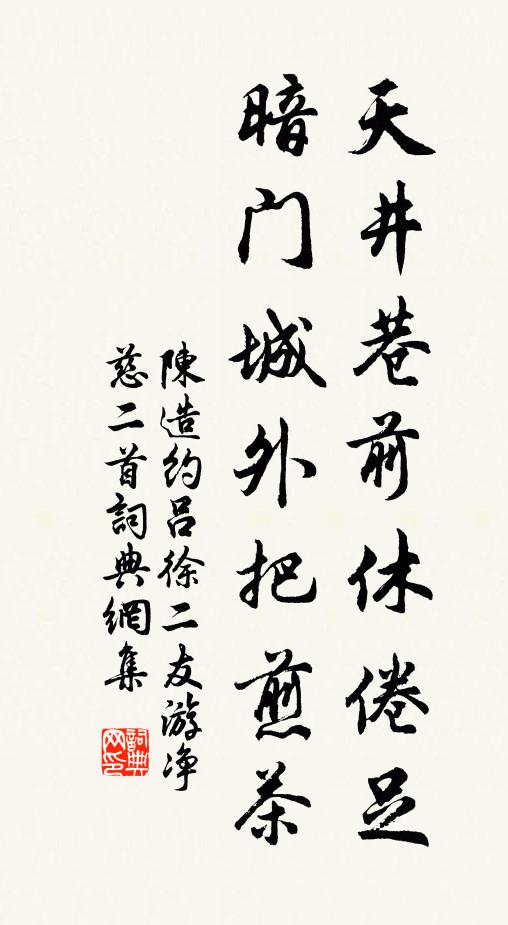 天井巷前休倦足
暗门城外把煎茶
陳造约吕徐二友游净
慈二首詞典網集
詞典网印